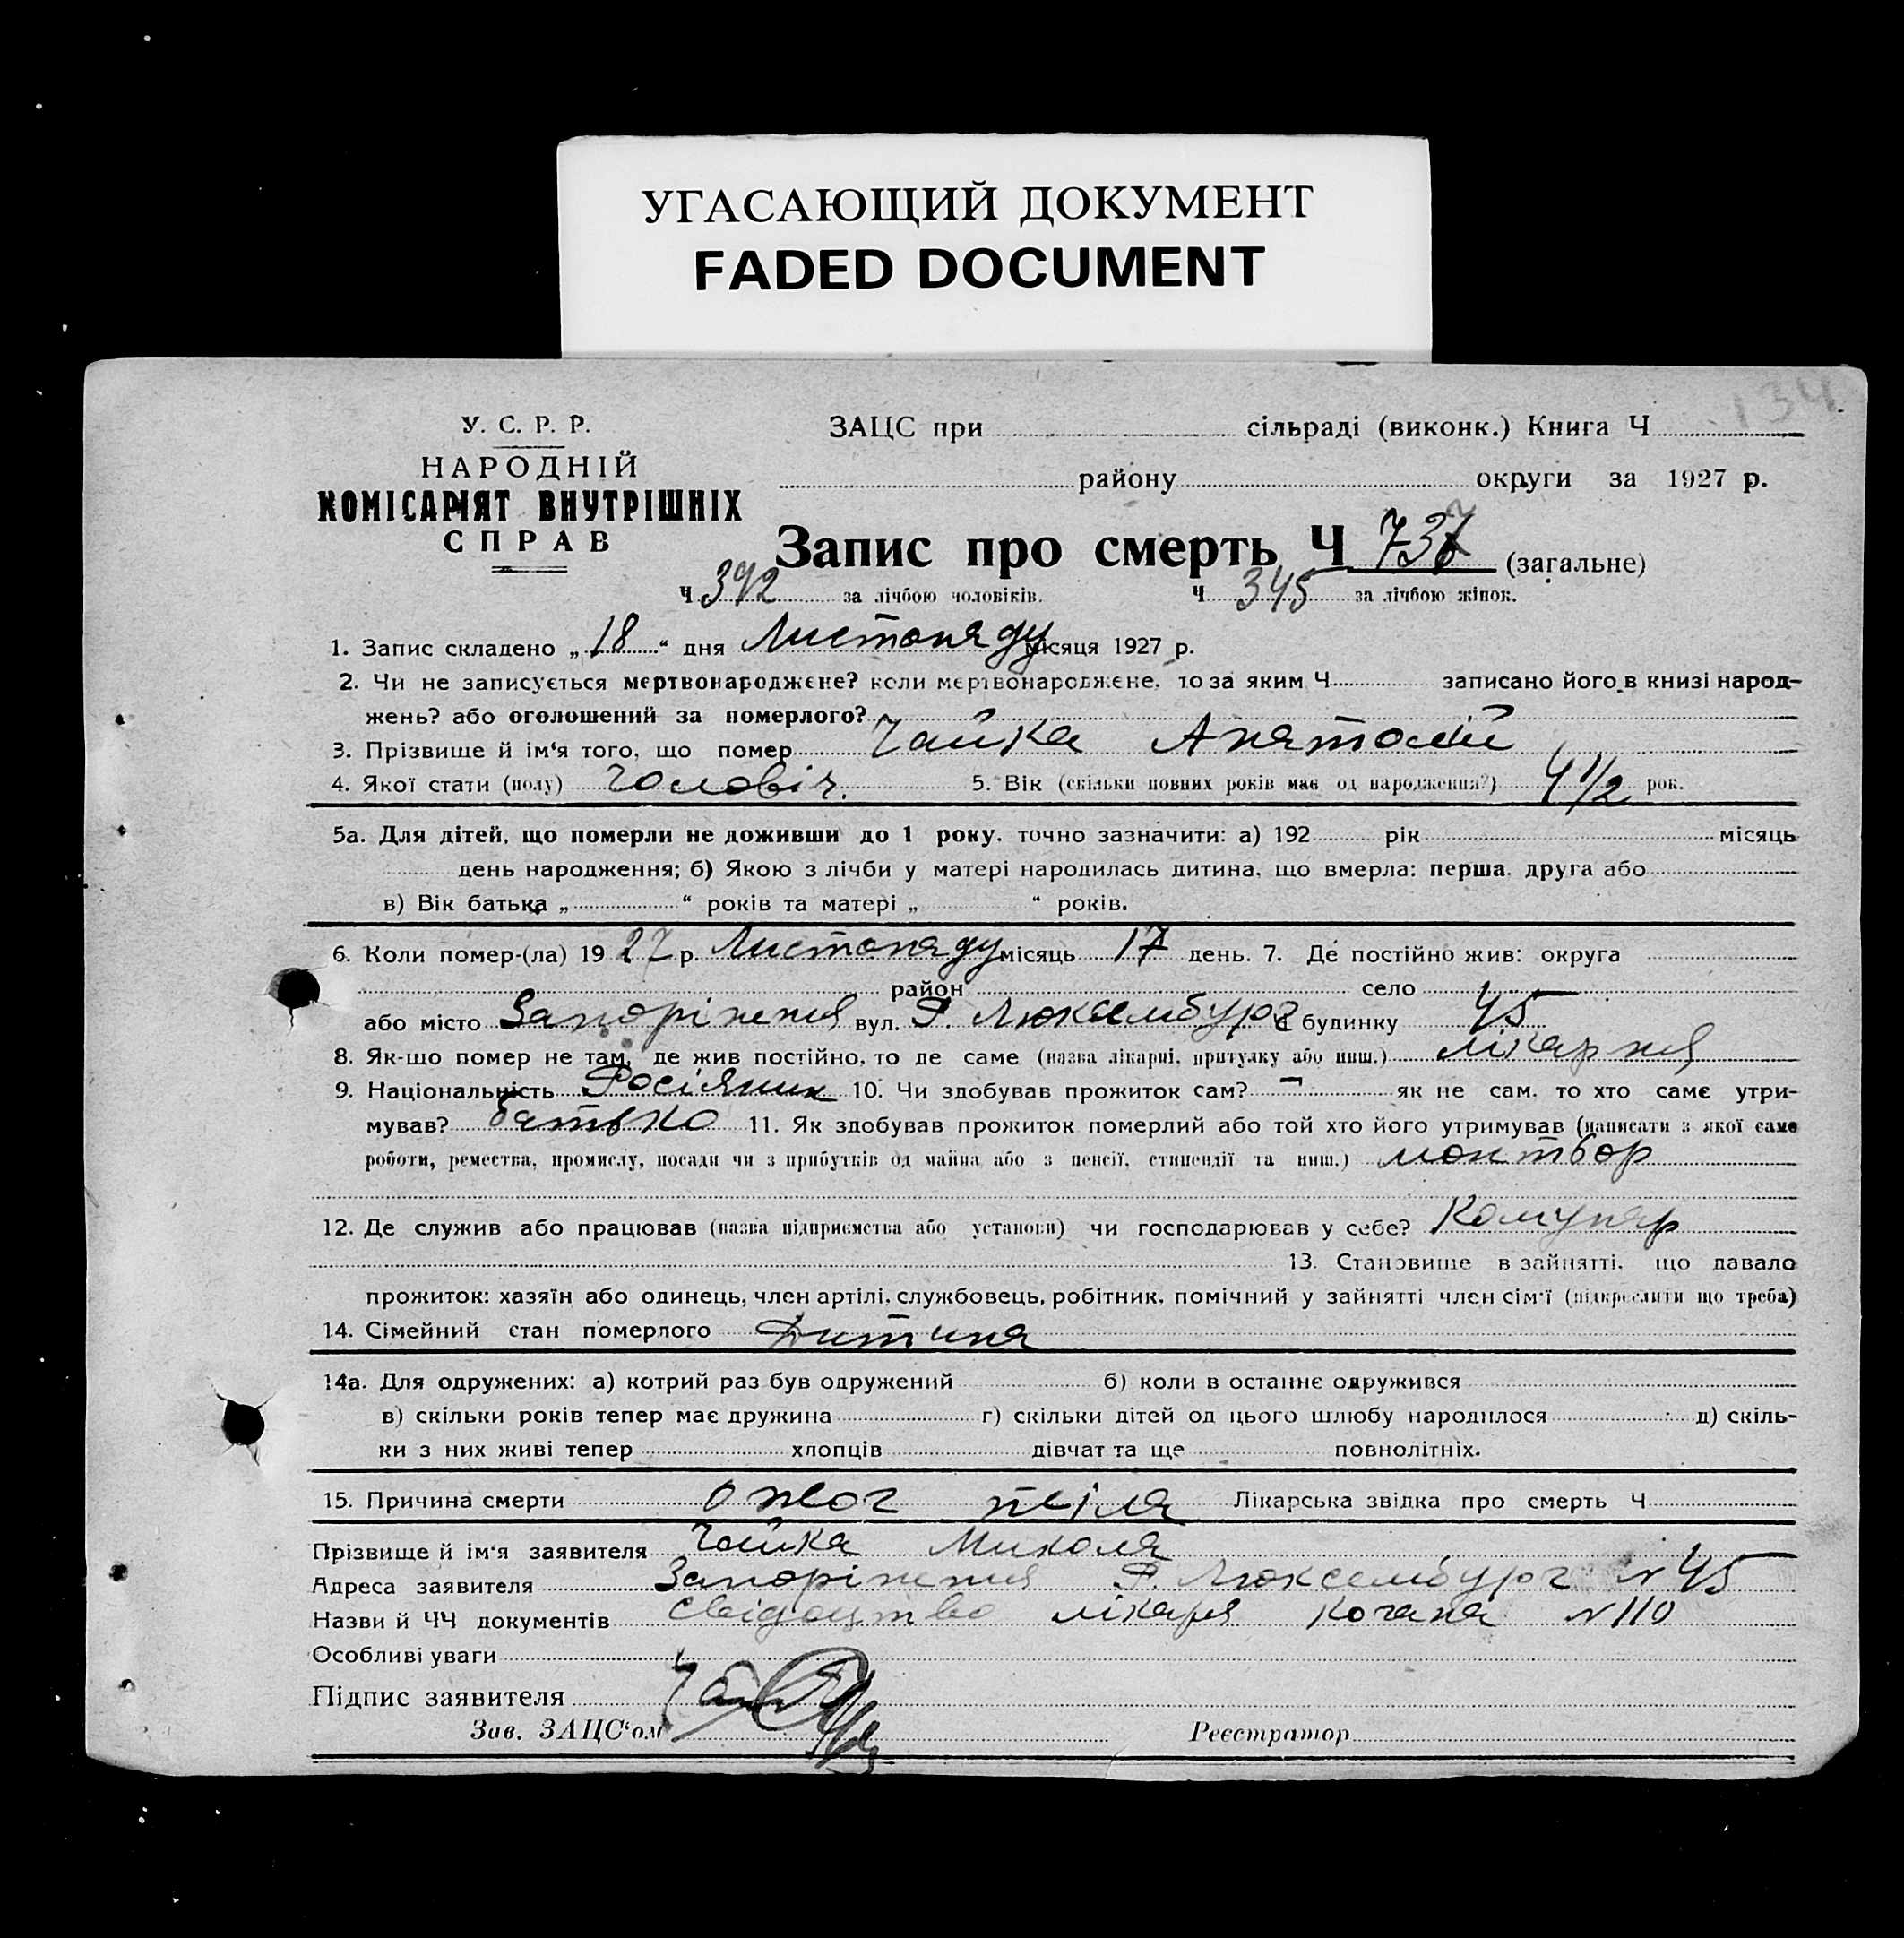 УГАСАЮЩИЙ ДОКУМЕНТ
FADED DOCUMENT
134
У. С. Р. Р.
НАРОДНІЙ
КОМІСАРІЯТ ВНУТРІШНІХ
СПРАВ
ЗАЦС при сільраді (виконк.) Книга Ч
району округи за 1927 р.
Запис про смерть Ч 737 (загальне)
Ч 392 за лічбою чоловіків. Ч 345 за лічбою жінок.
1. Запис складено „ 18 “ дня Листопаду місяця 1927 р.
2. Чи не записується мертвонароджене? коли мертвонароджене, то за яким Ч записано його в книзі народ-
жень? або оголошений за померлого?
3. Прізвище й ім‘я того, що помер Чайка Анатолій
4. Якої стати (полу) Чоловіч. 5. Вік (скільки повних років має од народження?) 4 1/2 рок.
5а. Для дітей, що померли не доживши до 1 року, точно зазначити: а) 192 рік місяць
день народження; б) Якою з лічби у матері народилась дитина, що вмерла: перша, друга або
в) Вік батька „ “ років та матері „ “ років.
6. Коли помер-(ла) 19 27 р. Листопаду місяць 17 день. 7. Де постійно жив: округа
район село
або місто Запоріжжя вул. Р. Люксембург будинку 45
8. Як-що помер не там, де жив постійно, то де саме (назва лікарні, притулку або инш.) лікарня
9. Національність Росіянин 10. Чи здобував прожиток сам? – як не сам, то хто саме утри-
мував? батько 11. Як здобував прожиток померлий або той хто його утримував (написати з якої саме
роботи, ремества, промислу, посади чи з прибутків од майна або з пенсії, стипендії та инш.) монтьор
12. Де служив або працював (назва підприємства або установи) чи господарював у себе? Комунар
13. Становище в зайнятті, що давало
прожиток: хазяїн або одинець, член артілі, службовець, робітник, помічний у зайнятті член сім‘ї (підкреслити що треба)
14. Сімейний стан померлого Дитина
14а. Для одружених: а) котрий раз був одружений б) коли в останнє одружився
в) скільки років тепер має дружина г) скільки дітей од цього шлюбу народилося д) скіль-
ки з них живі тепер хлопців дівчат та ще повнолітніх.
15. Причина смерти ожог тіла Лікарська звідка про смерть Ч
Прізвище й ім‘я заявителя Чайка Микола
Адреса заявителя Запоріжжя Р. Люксембург N 45
Назви й ЧЧ документів Свідоцтво лікаря Кочана N 110
Особливі уваги
Підпис заявителя
Зав. ЗАЦС‘ом Реєстратор